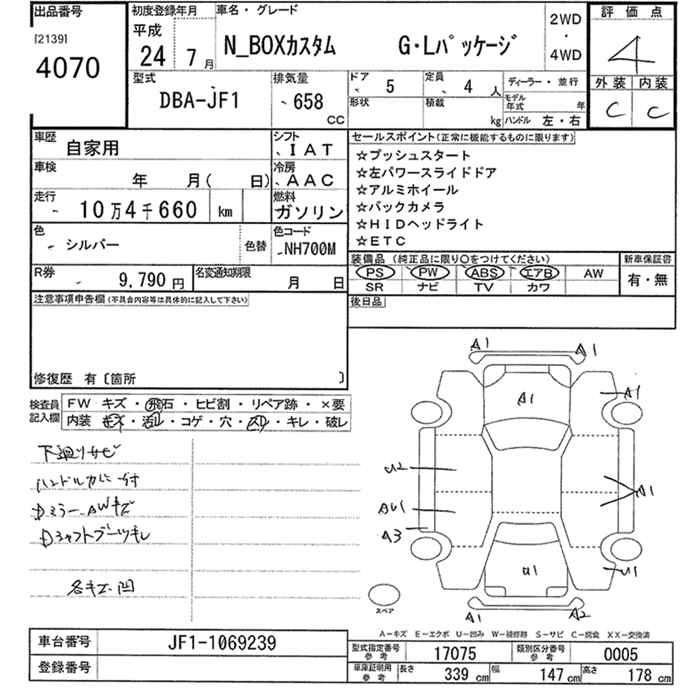 出品番号 初度登録年月 車名・グレード 2WD 評価点
[2139] 平成 ・
4070 24年 7月 N_BOXカスタム G・Lパッケージ 4WD 4
型式 排気量 ドア 5 定員 4人 ディーラー・並行 外装 内装
DBA-JF1 658 CC 形状 積載 kg モデル年式 年 C C
ハンドル 左・右
車歴 自家用 シフト IAT セールスポイント(正常に機能するものに限ります)
車検 年 月( 日) 冷房 AAC ☆プッシュスタート
☆左パワースライドドア
走行 10万4千660 km 燃料 ガソリン ☆アルミホイール
☆バックカメラ
色 シルバー 色替 色コード NH700M ☆HIDヘッドライト
☆ETC
R券 9,790円 名変通知期限 月 日 装備品(純正品に限り○をつけてください) 新車保証書
PS PW ABS エアB AW 有・無
SR ナビ TV カワ
注意事項申告欄(不具合内容等は具体的に記入して下さい) 後日品
修復歴 有〔箇所 〕
検査員記入欄 FW キズ・飛石・ヒビ割・リペア跡・×要
内装 キズ・汚レ・コゲ・穴・スレ・キレ・破レ
下廻りサビ
ハンドルカバー付
ドミラー、AWキズ
Dシャフトブーツキレ
各キズ・凹
A1 A1
A1 A1
U2 A1
AU1
A3
U1 U1
A1 A2
スペア
A－キズ E－エクボ U－凹み W－補修跡 S－サビ C－腐食 XX－交換済
車台番号 JF1-1069239 型式指定番号 参考 17075 類別区分番号 参考 0005
登録番号 車庫証明用 参考 長さ 339 cm 幅 147 cm 高さ 178 cm